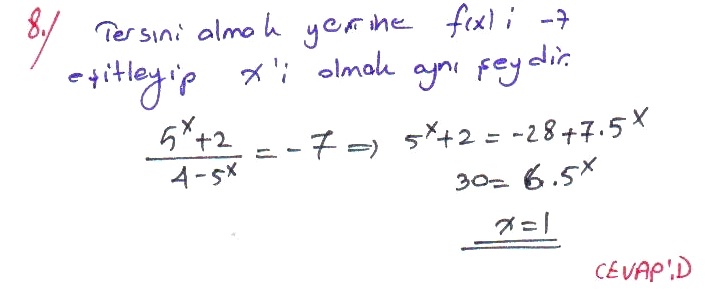 8./ Tersini almak yerine f(x) i -7
eşitleyip x'i almak aynı şeydir.
5^x+2 / 4-5^x = -7 ⇒ 5^x+2 = -28+7.5^x
30= 6.5^x
x=1
CEVAP:D